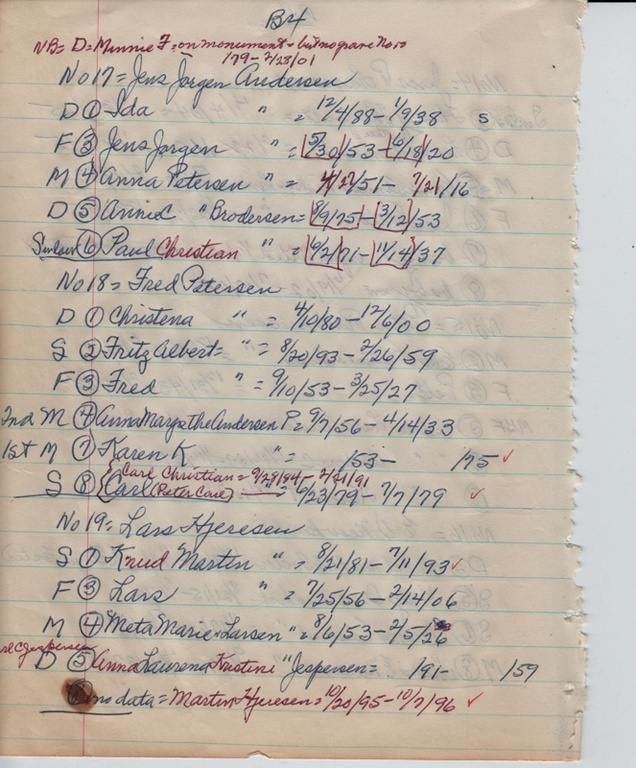 B4
NB= D=Minnie F= on monument - but no grave No.
/79-2/28/01
No 17= Jens Jorgen Andersen
D ① Ida " = 12/4/88-1/9/38 S
F ③ Jens Jorgen " = 5/30/53-6/18/20
M ④ Anna Petersen " = 4/27/51- 7/21/16
D ⑤ Annie C " Brodersen= 8/9/75-3/12/53
⑥ Paul Christian " = 6/2/71-11/14/37
No 18= Fred Petersen
D ① Christena " = 4/10/80-12/6/00
S ② Fritz Albert= " = 8/20/93-2/26/59
F ③ Fred " = 9/10/53-3/25/27
2nd M ④ Anna Margrethe Andersen P= 9/7/56-4/14/33
1st M ⑦ Karen K " = /53- /75 ✓
Carl Christian= 9/28/84-2/21/91
S ⑧ Carl (Peter Carl) " 6/23/79-7/7/79 ✓
No 19= Lars Hjeresen
S ① Knud Martin " = 8/21/81-7/11/93 ✓
F ③ Lars " = 7/25/56-2/14/06
M ④ "Meta Marie=Larsen " = 8/6/53-2/5/26
D ⑤ Anna Laurena Kristine "Jespersen= /91- /59
no data= Martin Hjeresen= 10/20/95-10/7/96 ✓